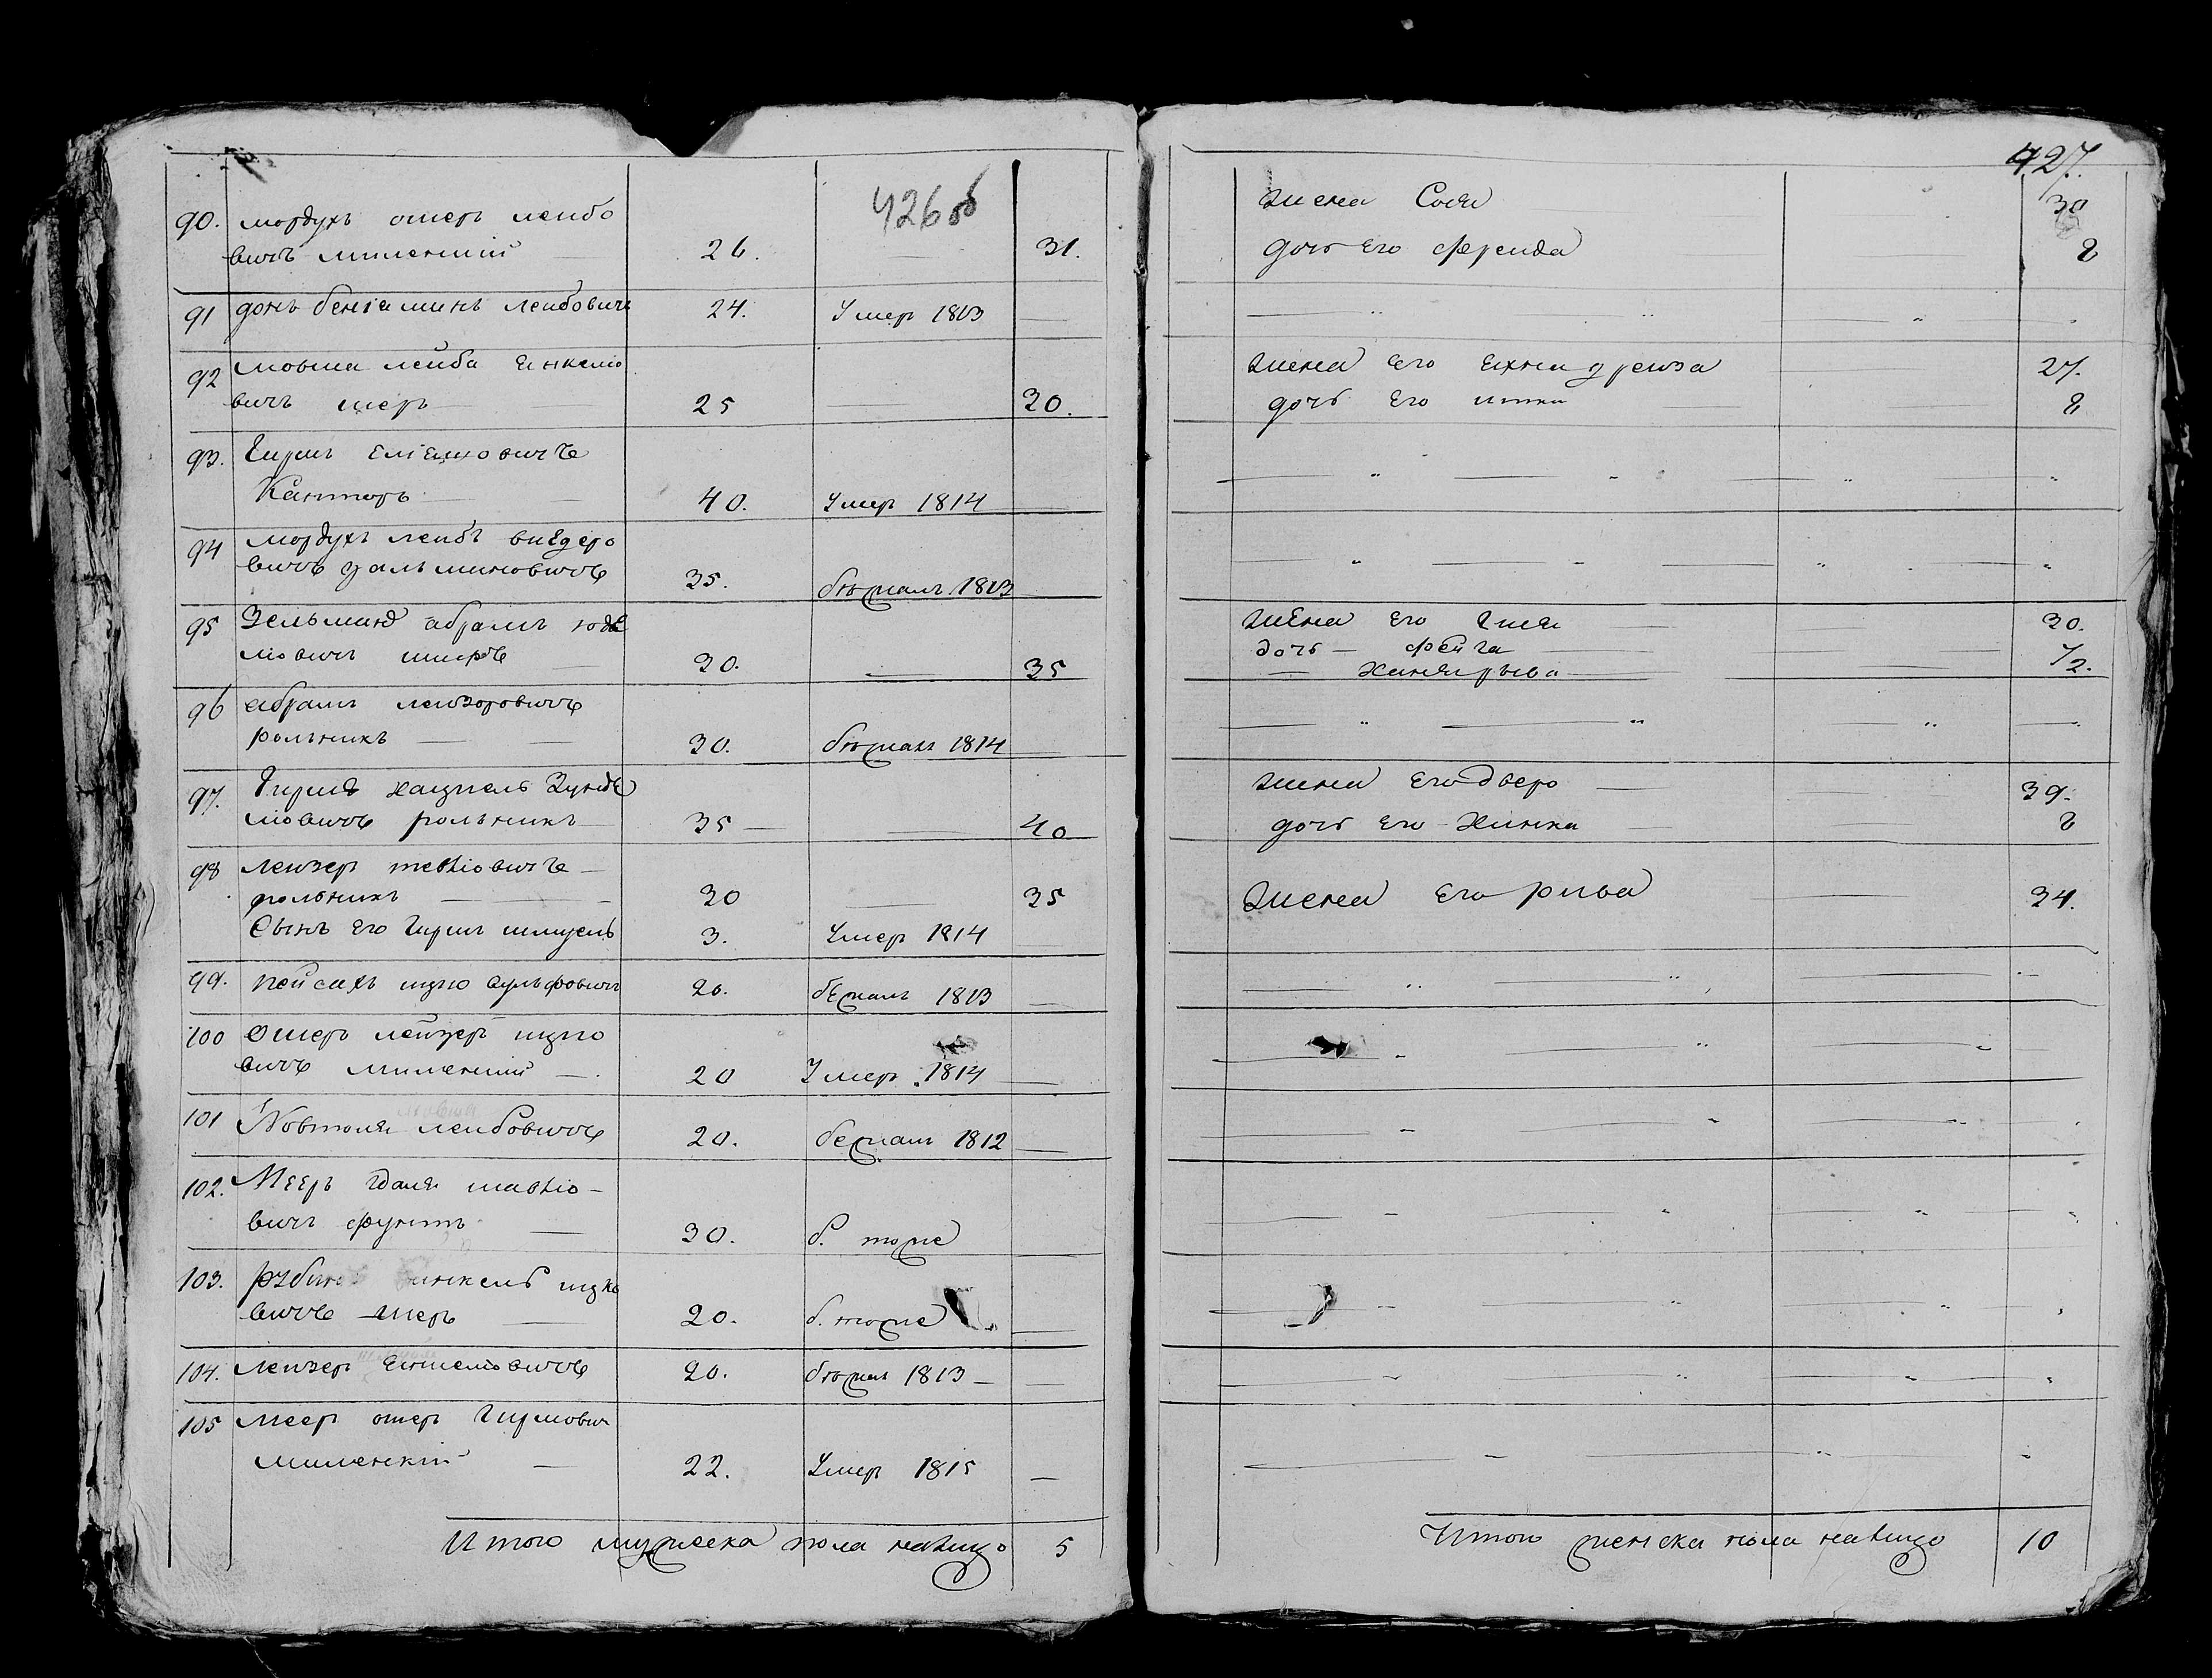 426 об
90. мордухъ ошеръ леибо
вичъ миленкий — 26. — 31.
91 донъ бениаминъ леибовичъ 24. Умер 1813 —
92 мовша леиба еинкелю
вичъ шеръ — 25 — 30.
93. Гиршъ
Канторъ — 40. Умер 1814 —
94 мордухъ леибъ
вичъ 35. бѣжалъ 1813
95 Зельманъ абрамъ юде
лювичъ 30. — 35
96 абрамъ леизоровичъ
рольникъ — 30. бѣжалъ 1814 —
97. Гиршъ хацкель Зунде
лювичъ рольникъ 35 — — 40
98 леизеръ тевелiовичъ —
рольникъ — 30 — 35
Сынъ его Гиршъ шмуель 3. Умеръ 1814 —
99. пейсахъ ицко вульфовичъ 20. бежалъ 1813 —
100 Ошеръ лейзеръ ицко
вичъ миленкий — 20 Умеръ 1814 —
101 Новтоля леибовичъ 20. бежалъ 1812 —
102. Мееръ Gдаля
вичъ фунтъ — 30. б. тоже —
103. рубинъ еинкель ицко
вичъ шеръ — 20. б. тоже —
104. леизеръ 20. бѣжал 1813 — —
105 меер ошеръ Гиршович
миленкий — 22. Умеръ 1815 —
Итого мужеска пола налицо 5
427.
жена Сося 30
дочъ его фреида 2
жена его ехна дреиза 27.
дочъ его итка 2
жена его Гися 30.
дочъ — фейга — 7/2.
— Ханярыва —
жена его дверо — 39.
дочъ его Хинка — 2
жена его рива — 34.
Итого женска пола налицо 10